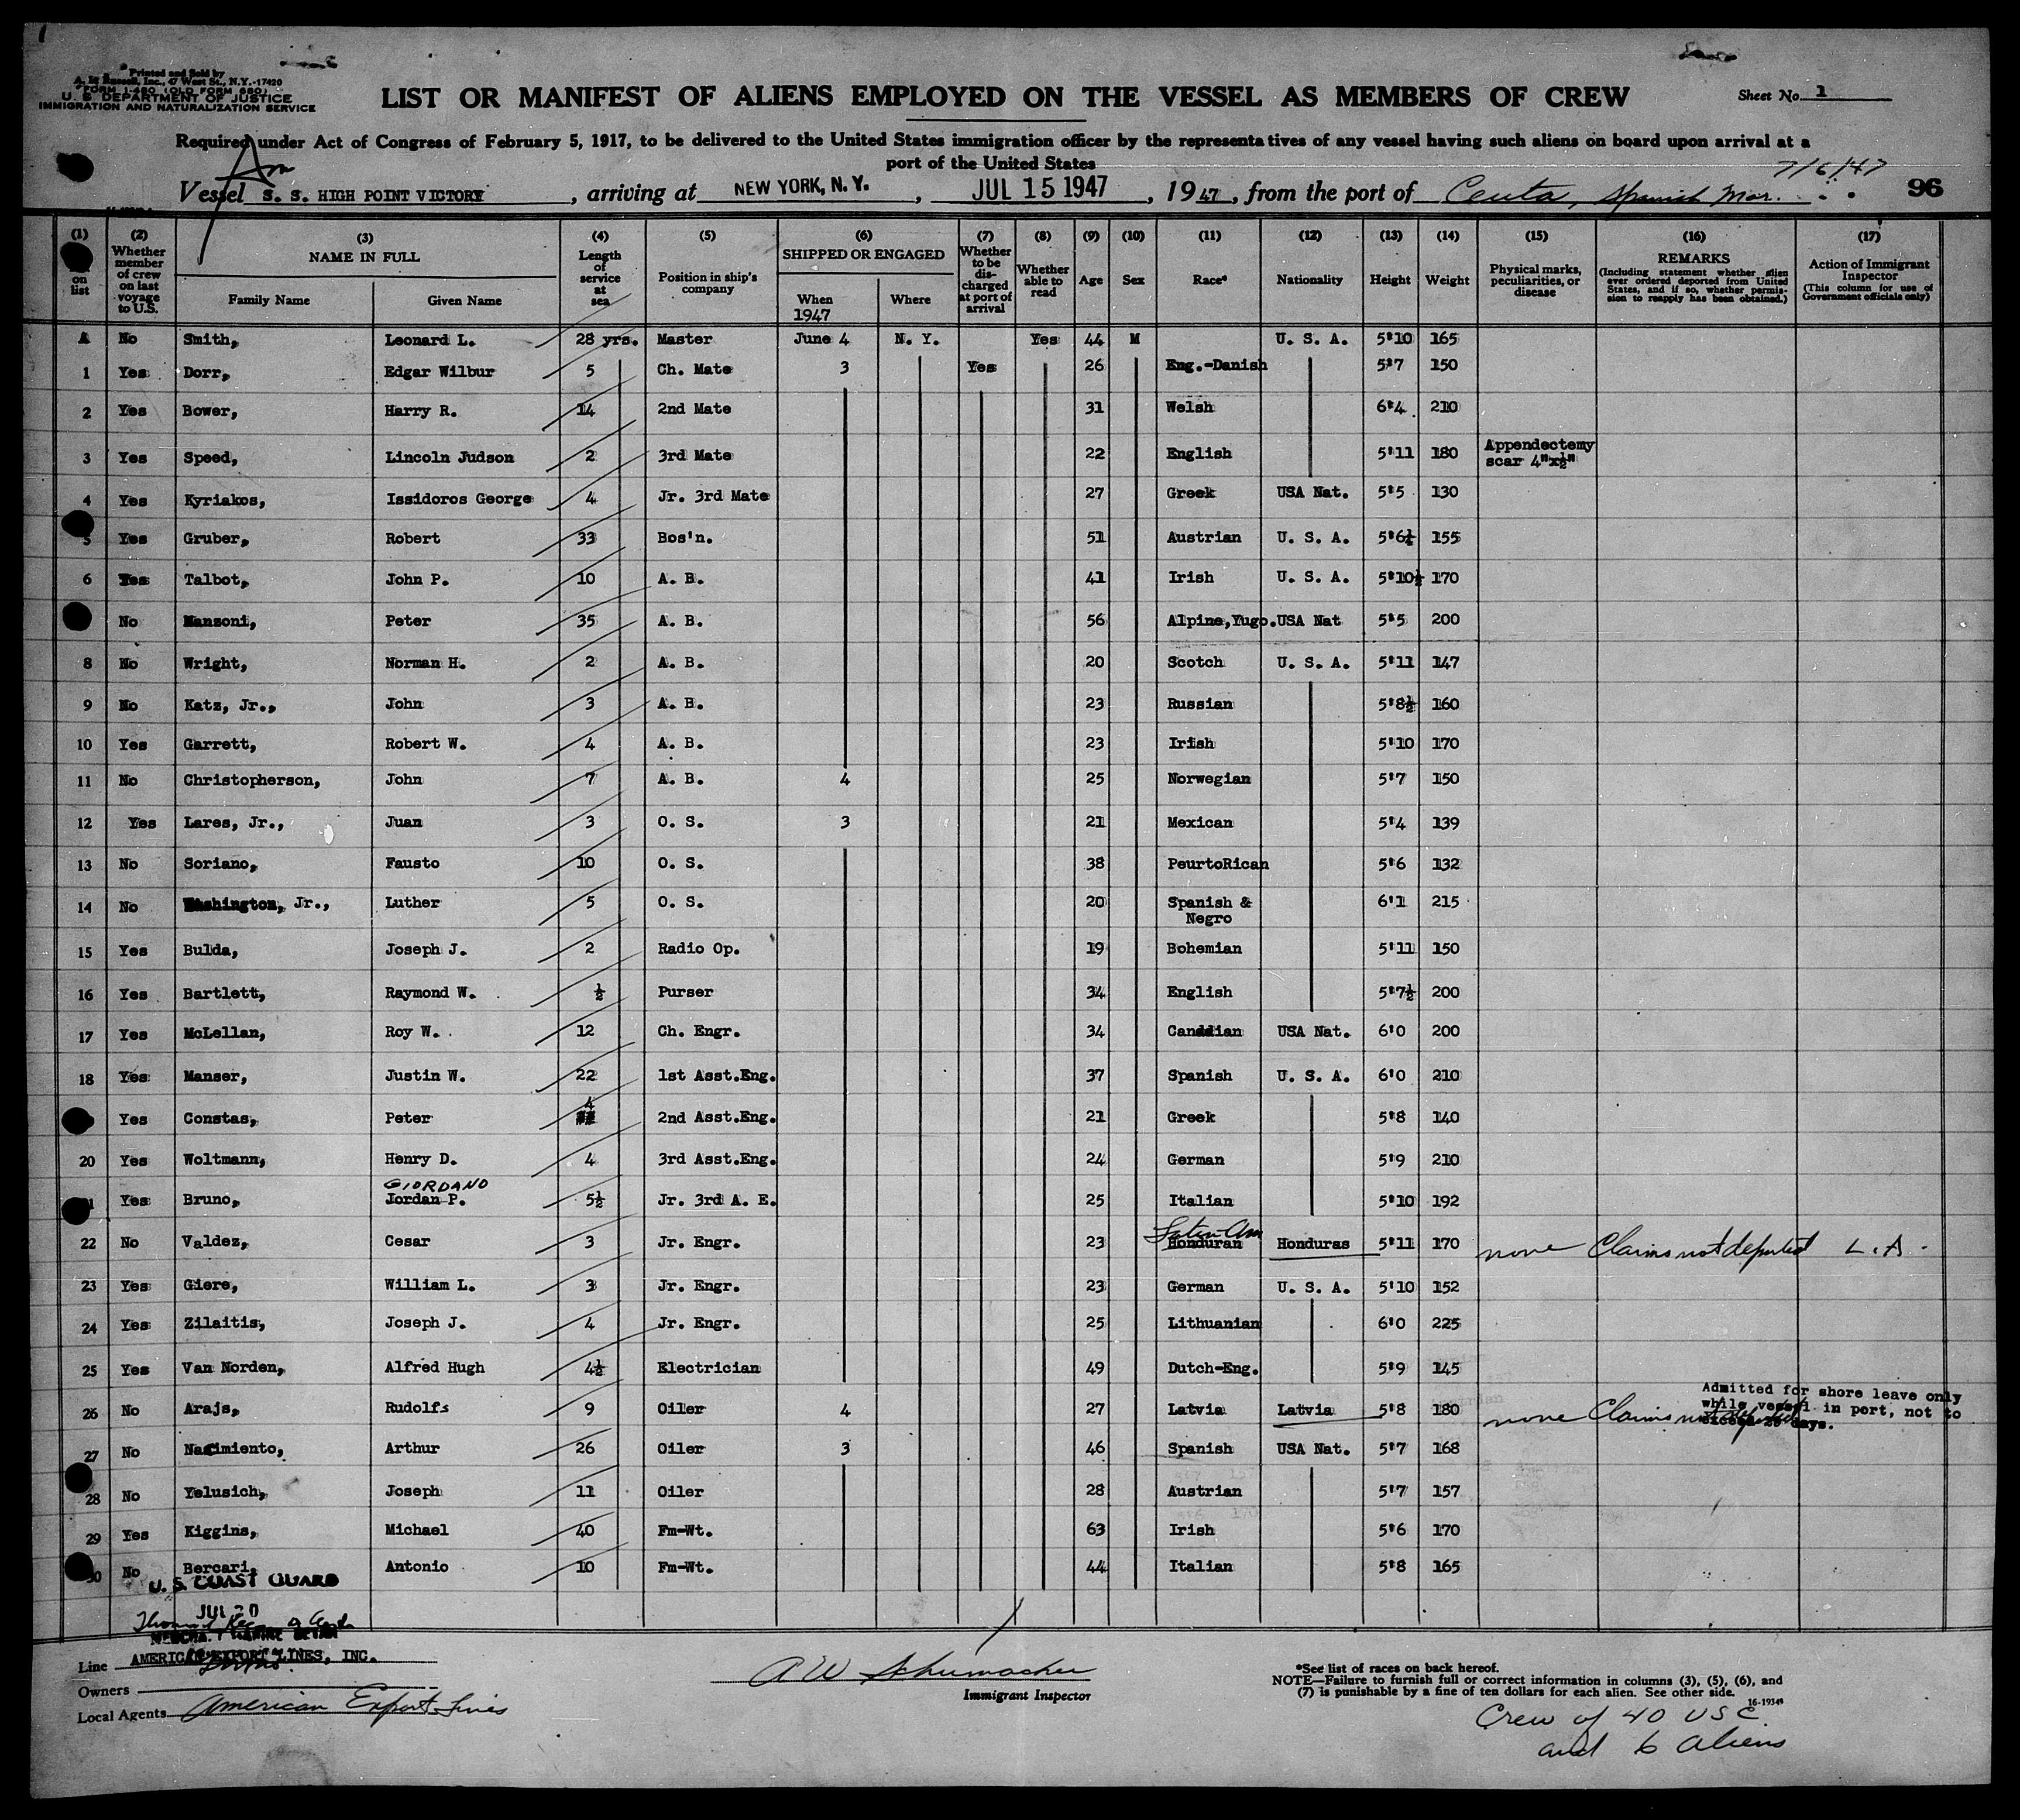 1
Printed and Sold by
A. L. Russell, Inc., 47 West St., N.Y.-17420
FORM I-480 (OLD FORM 680)
U. S. DEPARTMENT OF JUSTICE
IMMIGRATION AND NATURALIZATION SERVICE
LIST OR MANIFEST OF ALIENS EMPLOYED ON THE VESSEL AS MEMBERS OF CREW
Sheet No. 1
Required under Act of Congress of February 5, 1917, to be delivered to the United States immigration officer by the representatives of any vessel having such aliens on board upon arrival at a
port of the United States
Am
7/6/47
Vessel S. S. HIGH POINT VICTORY, arriving at NEW YORK, N. Y., JUL 15 1947, 1947, from the port of Ceuta, Spanish Mor. 96
(1) (2) (3) (4) (5) (6) (7) (8) (9) (10) (11) (12) (13) (14) (15) (16) (17)
on list
Whether member of crew on last voyage to U.S.
NAME IN FULL
Family Name Given Name
Length of service at sea
Position in ship's company
SHIPPED OR ENGAGED
When 1947 Where
Whether to be discharged at port of arrival
Whether able to read
Age Sex Race* Nationality Height Weight
Physical marks, peculiarities, or disease
REMARKS
(Including statement whether alien ever ordered deported from United States, and if so, whether permission to reapply has been obtained.)
Action of Immigrant Inspector
(This column for use of Government officials only)
A No Smith, Leonard L. 28 yrs. Master June 4 N. Y. Yes 44 M U. S. A. 5'10 165
1 Yes Dorr, Edgar Wilbur 5 Ch. Mate 3 Yes 26 Eng.-Danish 5'7 150
2 Yes Bower, Harry R. 14 2nd Mate 31 Welsh 6'4 210
3 Yes Speed, Lincoln Judson 2 3rd Mate 22 English 5'11 180 Appendectemy scar 4"x½"
4 Yes Kyriakos, Issidoros George 4 Jr. 3rd Mate 27 Greek USA Nat. 5'5 130
5 Yes Gruber, Robert 33 Bos'n. 51 Austrian U. S. A. 5'6½ 155
6 Yes Talbot, John P. 10 A. B. 41 Irish U. S. A. 5'10½ 170
No Manzoni, Peter 35 A. B. 56 Alpine,Yugo. USA Nat 5'5 200
8 No Wright, Norman H. 2 A. B. 20 Scotch U. S. A. 5'11 147
9 No Katz, Jr., John 3 A. B. 23 Russian 5'8½ 160
10 Yes Garrett, Robert W. 4 A. B. 23 Irish 5'10 170
11 No Christopherson, John 7 A. B. 4 25 Norwegian 5'7 150
12 Yes Lares, Jr., Juan 3 O. S. 3 21 Mexican 5'4 139
13 No Soriano, Fausto 10 O. S. 38 PeurtoRican 5'6 132
14 No Washington, Jr., Luther 5 O. S. 20 Spanish & Negro 6'1 215
15 Yes Bulda, Joseph J. 2 Radio Op. 19 Bohemian 5'11 150
16 Yes Bartlett, Raymond W. ½ Purser 34 English 5'7½ 200
17 Yes McLellan, Roy W. 12 Ch. Engr. 34 Canadian USA Nat. 6'0 200
18 Yes Manser, Justin W. 22 1st Asst.Eng. 37 Spanish U. S. A. 6'0 210
Yes Constas, Peter 4 2nd Asst.Eng. 21 Greek 5'8 140
20 Yes Woltmann, Henry D. 4 3rd Asst.Eng. 24 German 5'9 210
GIORDANO
1 Yes Bruno, Jordan P. 5½ Jr. 3rd A. E. 25 Italian 5'10 192
Latin-Am
22 No Valdez, Cesar 3 Jr. Engr. 23 Honduran Honduras 5'11 170 none Claims not deported L. A.
23 Yes Giere, William L. 3 Jr. Engr. 23 German U. S. A. 5'10 152
24 Yes Zilaitis, Joseph J. 4 Jr. Engr. 25 Lithuanian 6'0 225
25 Yes Van Norden, Alfred Hugh 4½ Electrician 49 Dutch-Eng. 5'9 145
26 No Arajs, Rudolfs 9 Oiler 4 27 Latvia Latvia 5'8 180 none Claims not deported
Admitted for shore leave only
while vessel in port, not to
exceed 29 days.
27 No Nacimiento, Arthur 26 Oiler 3 46 Spanish USA Nat. 5'7 168
28 No Yelusich, Joseph 11 Oiler 28 Austrian 5'7 157
29 Yes Kiggins, Michael 40 Fm-Wt. 63 Irish 5'6 170
30 No Bercari, Antonio 10 Fm-Wt. 44 Italian 5'8 165
U. S. COAST GUARD
JUL 20
Line AMERICAN EXPORT LINES, INC.
Owners
Local Agents American Export Lines
A W Schumacher
Immigrant Inspector
*See list of races on back hereof.
NOTE—Failure to furnish full or correct information in columns (3), (5), (6), and
(7) is punishable by a fine of ten dollars for each alien. See other side.
16-19349
Crew of 40 USC
and 6 aliens